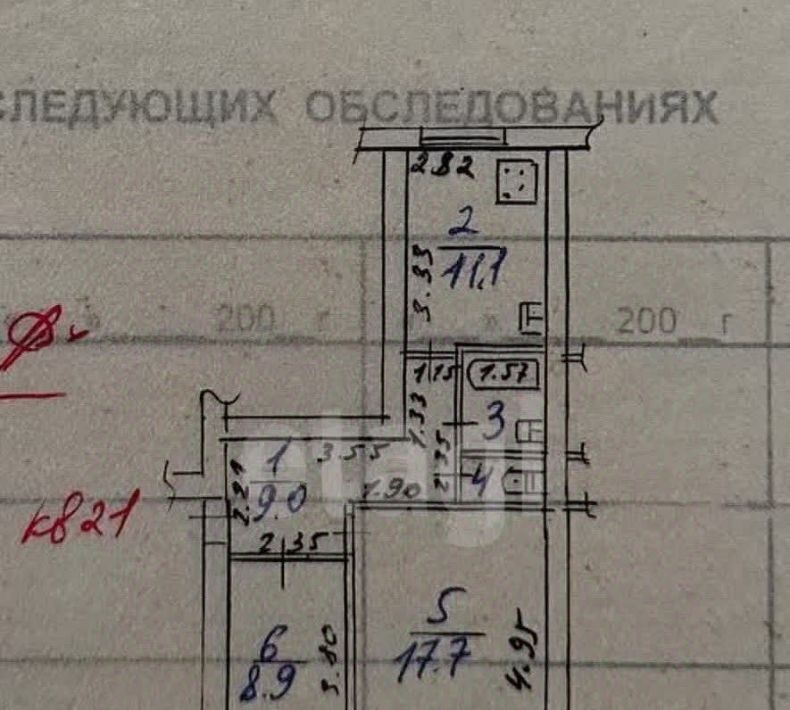 СЛЕДУЮЩИХ ОБСЛЕДОВАНИЯХ
2.82
2
11.1
3.93
200 г
200 г
1.15
1.57
1.33
3
1
3.55
2.35
4
9.0
2.21
1.90
кв 21
2.35
5
17.7
4.95
6
8.9
3.80